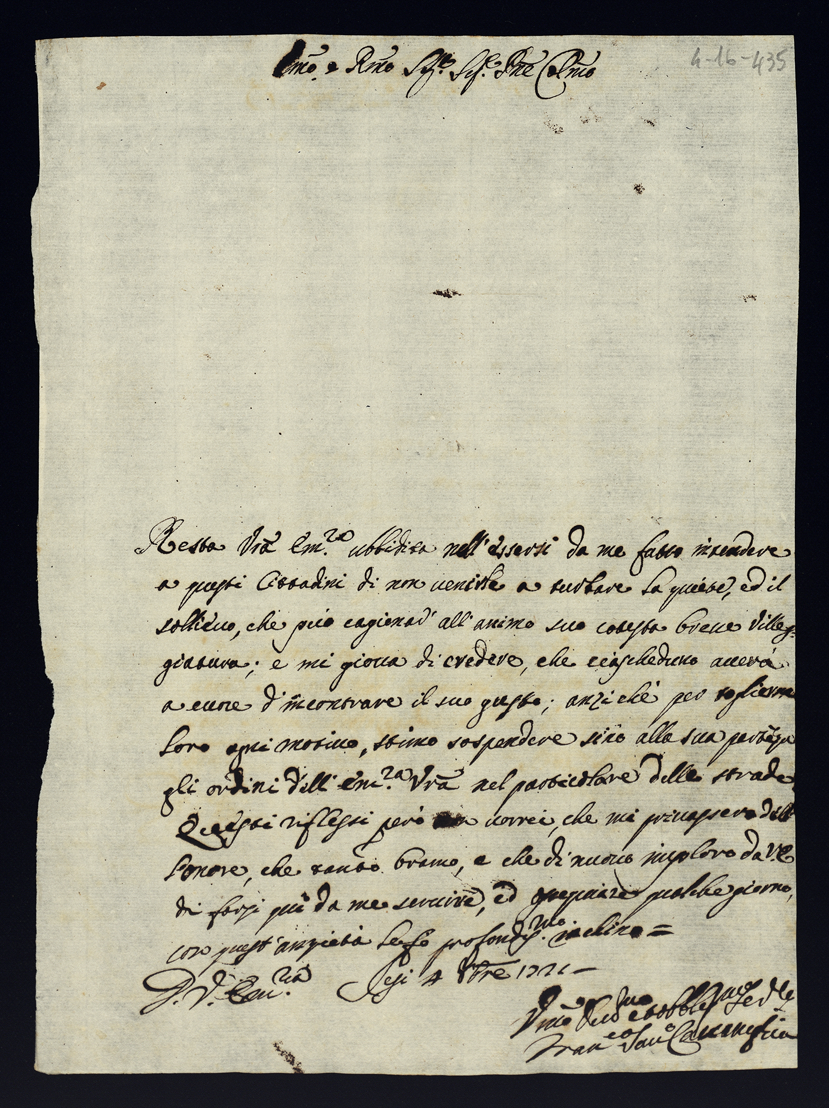 Emo, e Rmo Sig.re Sig.re Pne Colmo
4-16-435
Resta Vrā Em.za ubbidita nell'essersi da me fatto intendere
a questi Cittadini di non venirle a turbare la quiete, ed il
sollievo, che può cagionar' all'animo suo cotesta breve Villeg-
giatura; e mi giova di credere, che ciascheduno averà
a cuore d'incontrare il suo gusto; anzi che per togliere
loro ogni motivo, stimo sospendere sino alla sua partēza
gli ordini dell'Em.za Vrā nel particolare delle strade.
Questi riflessi però non vorrei, che mi privassero dell'
honore, che tanto bramo, e che di nuovo imploro da V.E.
di farsi quà da me servire, ed qualche giorno,
con quest'ansietà profondis.mo inchino =
D. V. Em.za Jesi 4 1721 -
Vmo Devmo et obblmo
Fran.co